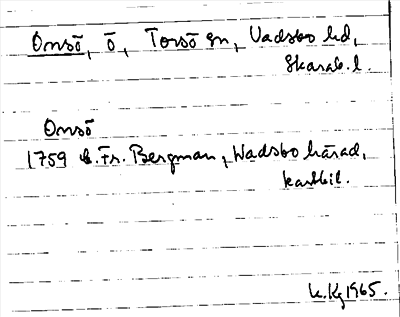 Onsö, ö, Torsö sn, Vadsbo hd,
Skarab. l.
Onsö
1759 C. Fr. Bergman, Wadsbo härad,
kartbil.
K.Kg 1965.